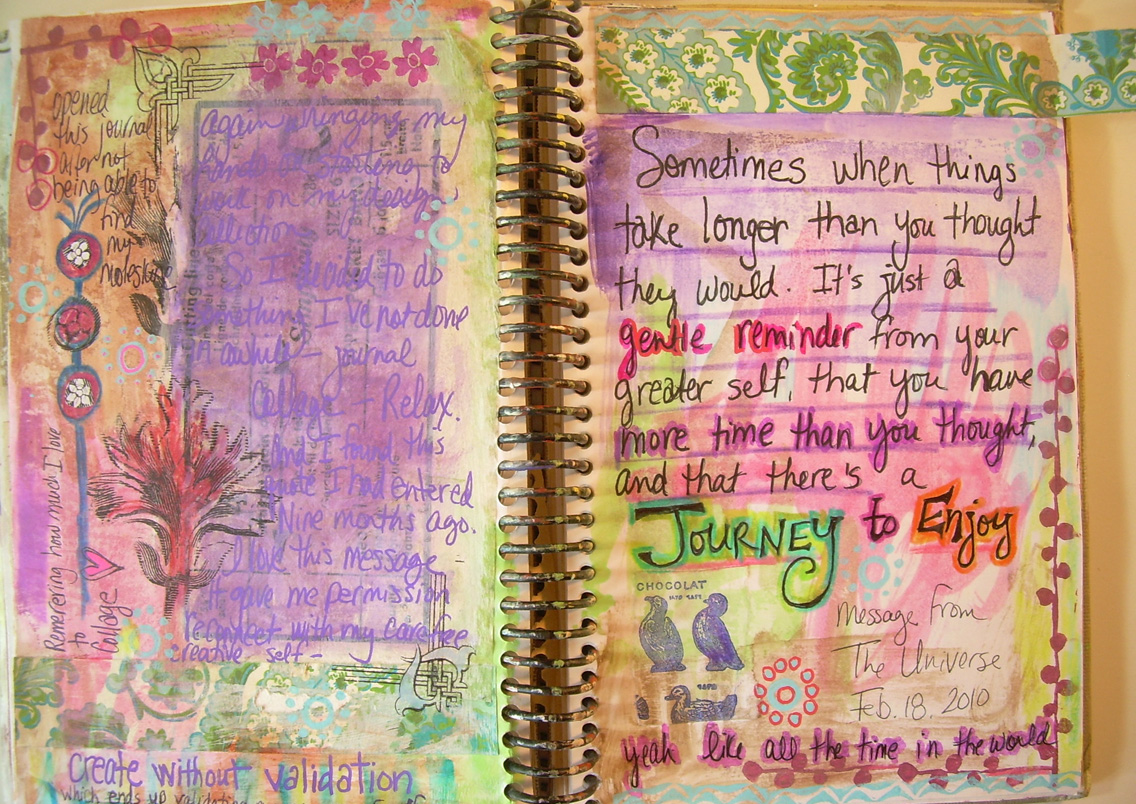 opened
this journal
after not
being able to
find
my
moleskine
again, hinging my
hands & starting to
work on my
So I decided to do
something I've not done
in awhile - journal
Collage + Relax.
And I found this
quote I had entered
Nine months ago.
I love this message
it gave me permission
reconnect with my carefree
creative self -
Remembering how much I love
to
Collage
create without validation
which ends up validating
Sometimes when things
take longer than you thought
they would. It's just a
gentle reminder from your
greater self, that you have
more time than you thought,
and that there's a
JOURNEY to Enjoy
CHOCOLAT
message from
The Universe
Feb. 18. 2010
yeah like all the time in the world